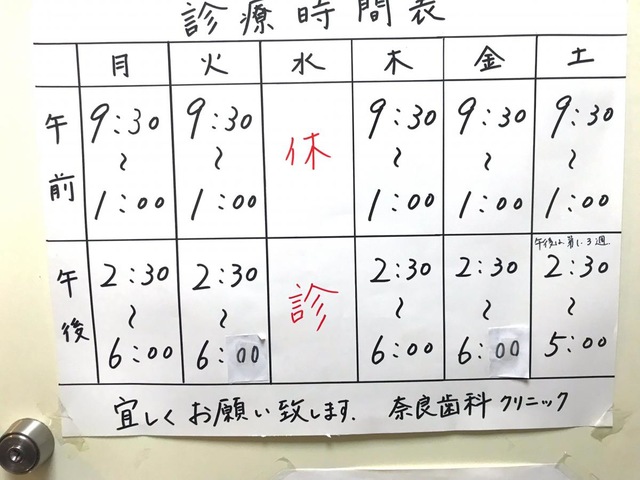 診療時間表
月 火 水 木 金 土
午前 9:30~1:00 9:30~1:00 休 9:30~1:00 9:30~1:00 9:30~1:00
午後は、第1、3週
午後 2:30~6:00 2:30~6:00 診 2:30~6:00 2:30~6:00 2:30~5:00
宜しくお願い致します. 奈良歯科クリニック